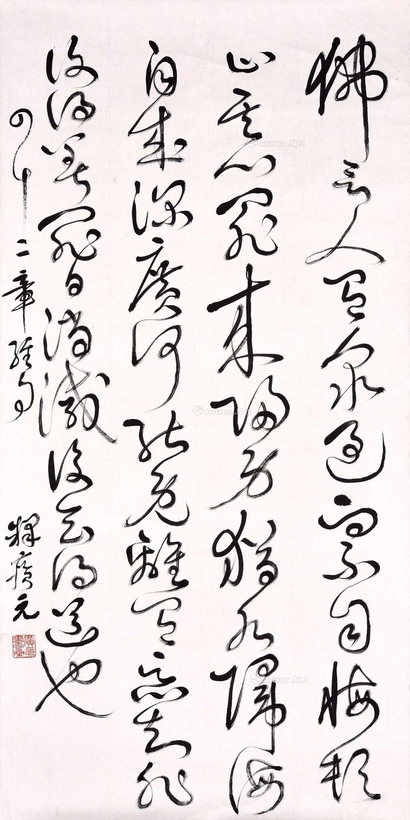 佛言人有眾過而不自悔頓
止其心罪來歸身猶水歸海
自成深廣何能免離有惡知非
改得善罪日消滅後會得道也
四十二章經句
釋廣元